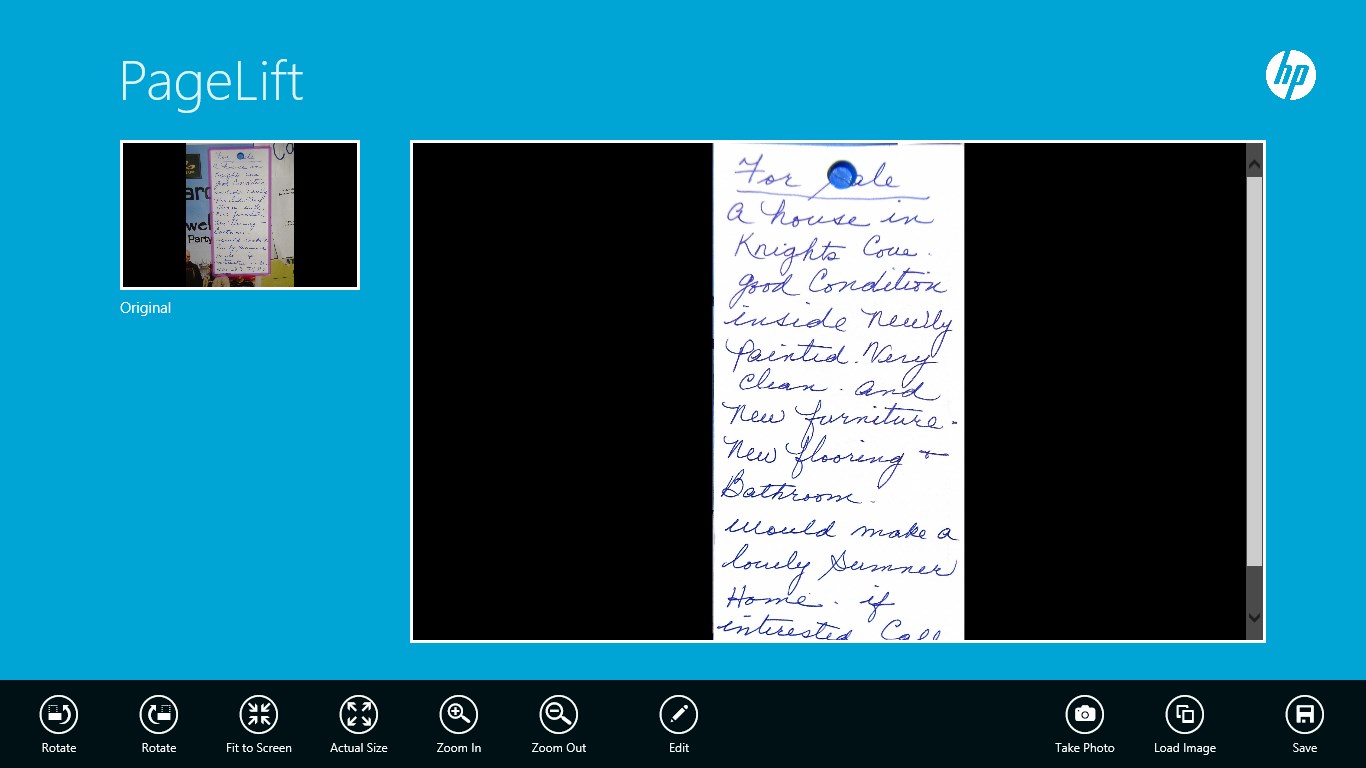 PageLift
hp
Original
For Sale
A house in
Knights Cove.
good Condition
inside Newly
Painted. Very
Clean. and
New furniture.
New flooring +
Bathroom.
Would make a
lovely Summer
Home. if
interested Call
Rotate
Rotate
Fit to Screen
Actual Size
Zoom In
Zoom Out
Edit
Take Photo
Load Image
Save